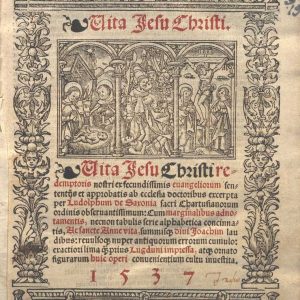 Vita Jesu Christi.
Vita Jesu Christi re⸗
demptoris nostri ex fecundissimis euangeliorum sen⸗
tentijs et approbatis ab ecclesia doctoribus excerpta
per Ludolphum de Saxonia sacri Chartusianorum
ordinis obseruantissimum: Cum marginalibus adno⸗
tamentis, necnon tabula serie alphabetica concinna⸗
ta, Ac sancte Anne vita, summisq; diui Joachim lau
dibus: reuulsoq; nuper antiquorum errorum cumulo:
exactiori lima q̃ prius Lugduni impressa, atq; ornato
figurarum huic operi conuenientium cultu inuestita.
1537